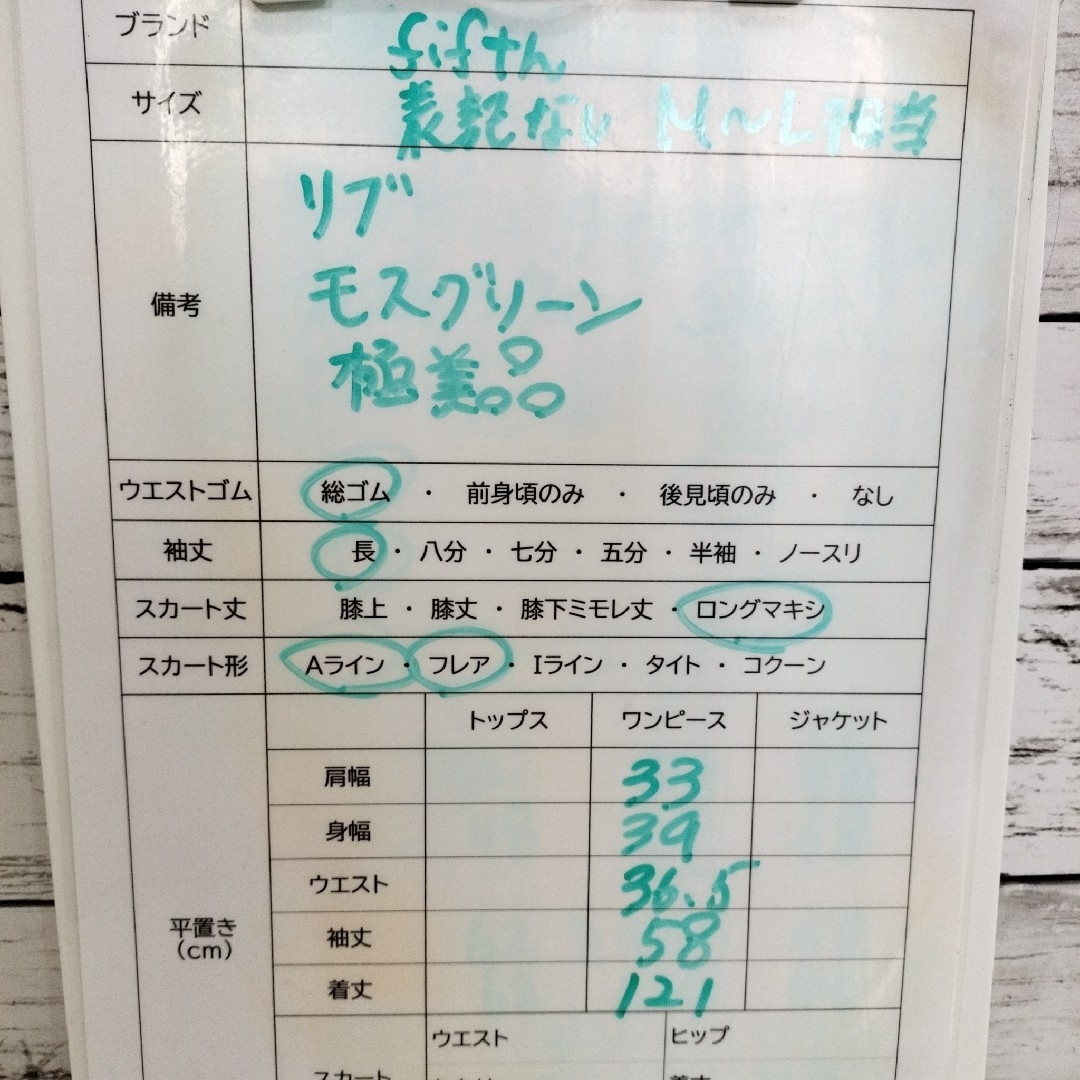 ブランド fifth
サイズ 表記ない M～L相当
備考
リブ
モスグリーン
極美品
ウエストゴム 総ゴム ・ 前身頃のみ ・ 後見頃のみ ・ なし
袖丈 長 ・ 八分 ・ 七分 ・ 五分 ・ 半袖 ・ ノースリ
スカート丈 膝上 ・ 膝丈 ・ 膝下ミモレ丈 ・ ロングマキシ
スカート形 Aライン ・ フレア ・ Iライン ・ タイト ・ コクーン
トップス ワンピース ジャケット
平置き
(cm)
肩幅 33
身幅 39
ウエスト 36.5
袖丈 58
着丈 121
ウエスト ヒップ
スカート